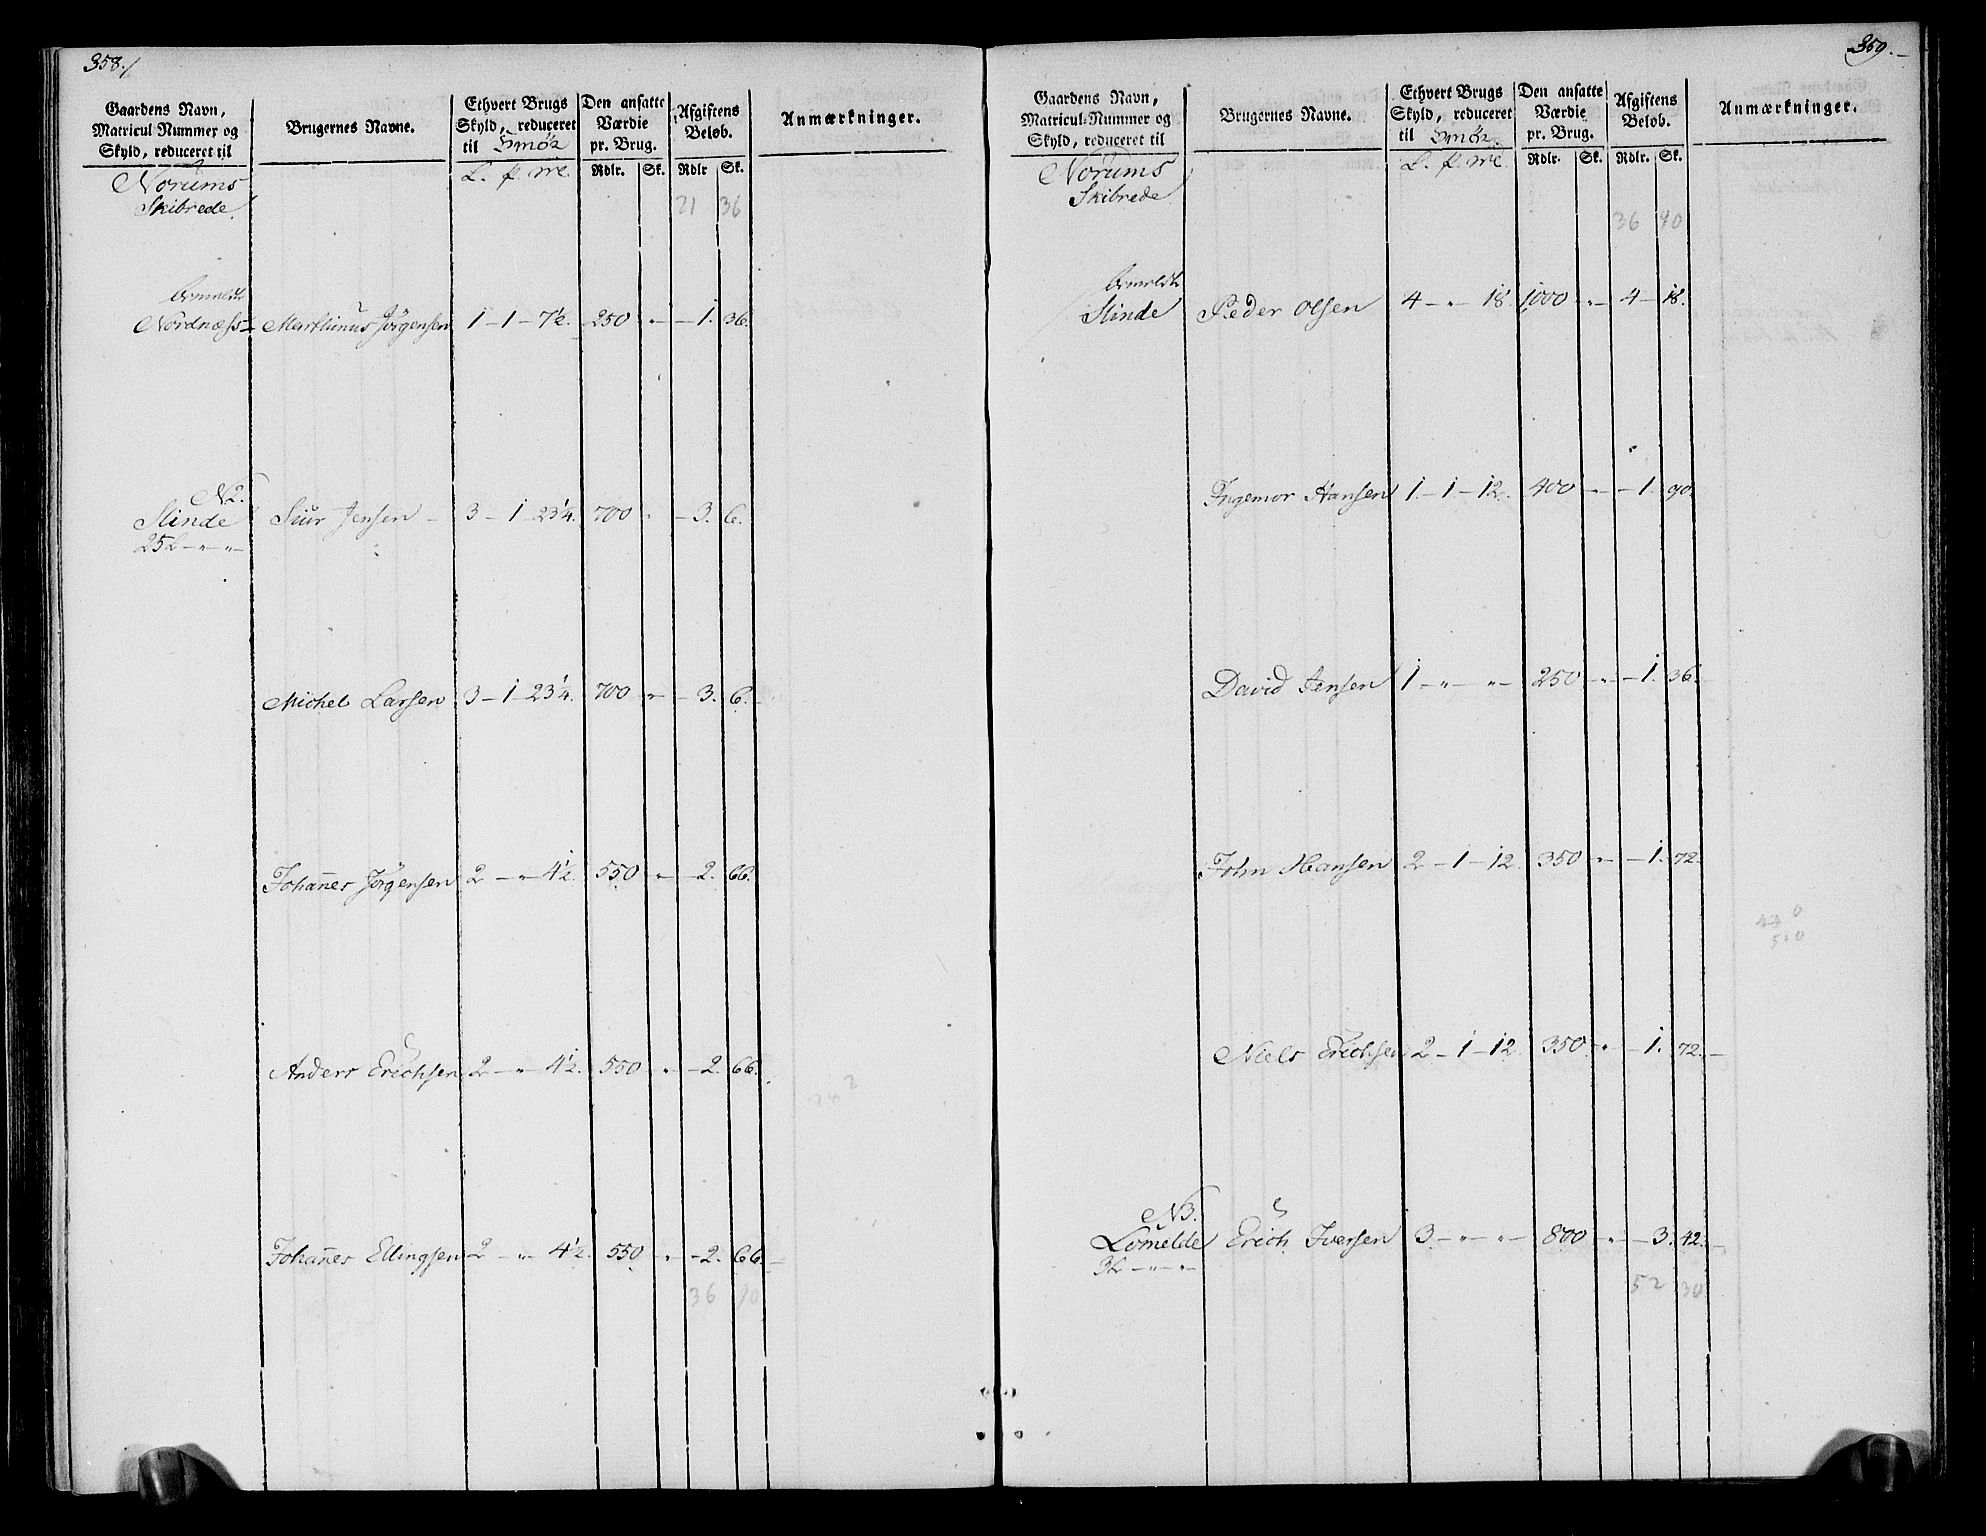 358.
Gaardens Navn, Matricul-Nummer og Skyld, reduceret til
Brugernes Navne.
Ethvert Brugs Skyld, reduceret til Smör
Den ansatte Værdie pr. Brug.
Afgiftens Beløb.
Anmærkninger.
L. p. mk. Rdlr. Sk. Rdlr Sk.
Norums
Skibrede.
21 36
Nordnæss Marthinus Jörgensen 1 - 1 - 7½. 250 " - 1. 36.
N2.
Slinde Siur Jensen - 3 - 1 - 23¼. 700 " - 3. 6.
25 L - " - " -
Michel Larsen 3 - 1 - 23¼. 700 " - 3. 6.
Johannes Jörgensen 2 - " - 4½. 550 " - 2. 66.
Anders Erichsen 2 - " - 4½. 550 " - 2. 66.
Johannes Ellingsen 2 - " - 4½. 550 " - 2. 66.
36
359.
Gaardens Navn, Matricul-Nummer og Skyld, reduceret til
Brugernes Navne.
Ethvert Brugs Skyld, reduceret til Smör.
Den ansatte Værdie pr. Brug.
Afgiftens Beløb.
Anmærkninger.
L. p. mk. Rdlr. Sk. Rdlr. Sk.
Norums
Skibrede
36 90
Slinde Peder Olsen 4 - " - 18. 1000 " - 4 - 18.
Ingemor Hansen 1. - 1 - 12. 400 " - 1. 90.
David Jensen 1 - " - " - 250 " - 1. 36.
John Hansen 2 - 1 - 12. 350 " - 1. 72.
Niels Erichsen 2 - 1 - 12. 350. " - 1. 72.
N3.
Lomelde Erich Iversen 3. - " - " - 800 " - 3. 42.
3 L - " - " -
52 30